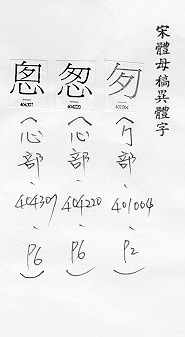 宋體母稿異體字
匆 401004 （勹部、401004、P2）
怱 404220 （心部、404220、P6）
悤 404307 （心部、404307、P6）